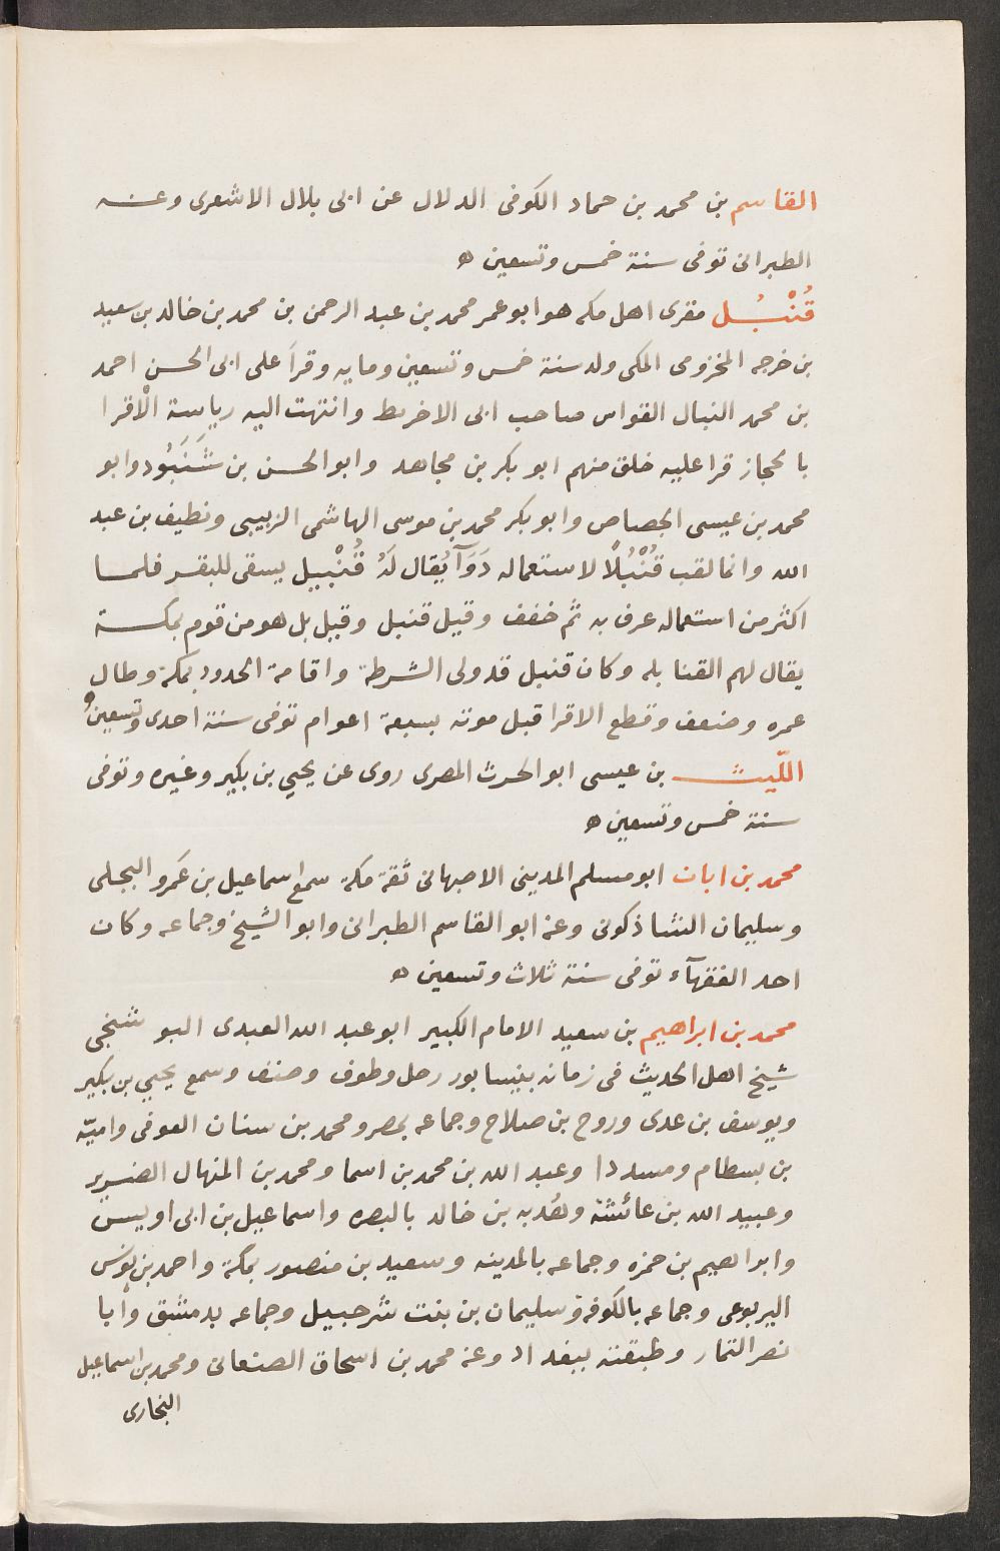 القاسم بن محمد بن حماد الكوفى الدلال عن ابى بلال الاشعرى وعنه
الطبرانى توفى سنة خمس وتسعين ه
قُنْبُل مقرى اهل مكه هو ابو عمر محمد بن عبد الرحمن بن محمد بن خالد بن سعيد
بن خرجه المخزومى المكى ولد سنة خمس وتسعين ومايه وقرأ على ابى الحسن احمد
بن محمد النبال القواس صاحب ابى الاخريط وانتهت اليه رياسة الاقرا
بالحجاز قرا عليه خلق منهم ابو بكر بن مجاهد وابو الحسن بن شَنَبُود وابو
محمد بن عيسى الجصاص وابو بكر محمد بن موسى الهاشمى الزبيبى ونطيف بن عبد
الله وانما لقب قُنْبُلاً لاستعماله دَوَآ يُقال لَهُ قُنْبيل يسقى للبقر فلما
اكثر من استعماله عرف به ثم خفف وقيل قنبل وقيل بل هو من قوم بمكة
يقال لهم القنابله وكان قنبل قد ولى الشرطة واقامة الحدود بمكة وطال
عمره وضعف وقطع الاقرا قبل موته بسبعة اعوام توفى سنة احدى وتسعين ه
اللّيث بن عيسى ابو الحرث المصرى روى عن يحيي بن بكير وغيره وتوفى
سنة خمس وتسعين ه
محمد بن ابان ابو مسلم المدينى الاصبهانى ثقة مكة سمع اسماعيل بن عَمرو البجلى
وسليمان الشاذكونى وعنه ابو القاسم الطبرانى وابو الشيخ وجماعه وكان
احد الفقهآء توفى سنة ثلاث وتسعين ه
محمد بن ابراهيم بن سعيد الامام الكبير ابو عبد الله العبدى البوشنجى
شيخ اهل الحديث فى زمانه بنيسابور رحل وطوف وصنف وسمع يحيي بن بكير
ويوسف بن عدى وروح بن صلاح وجماعه بمصر ومحمد بن سنان العوفى واميّه
بن بسطام ومسددا وعبد الله بن محمد بن اسما ومحمد بن المنهال الضرير
وعبيد الله بن عائشة وهُدبه بن خالد بالبصره واسماعيل بن ابى اويس
وابراهيم بن حمزه وجماعه بالمدينه وسعيد بن منصور بمكة واحمد بن يونس
اليربوعى وجماعه بالكوفة وسليمان بن بنت شرحبيل وجماعه بدمشق وأبا
نصر التمار وطبقته ببغداد وعنه محمد بن اسحاق الصنعانى ومحمد بن اسماعيل
البخارى